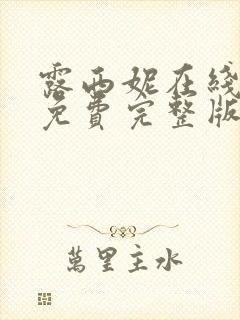 露西妮在线
免費完整版
萬里主水